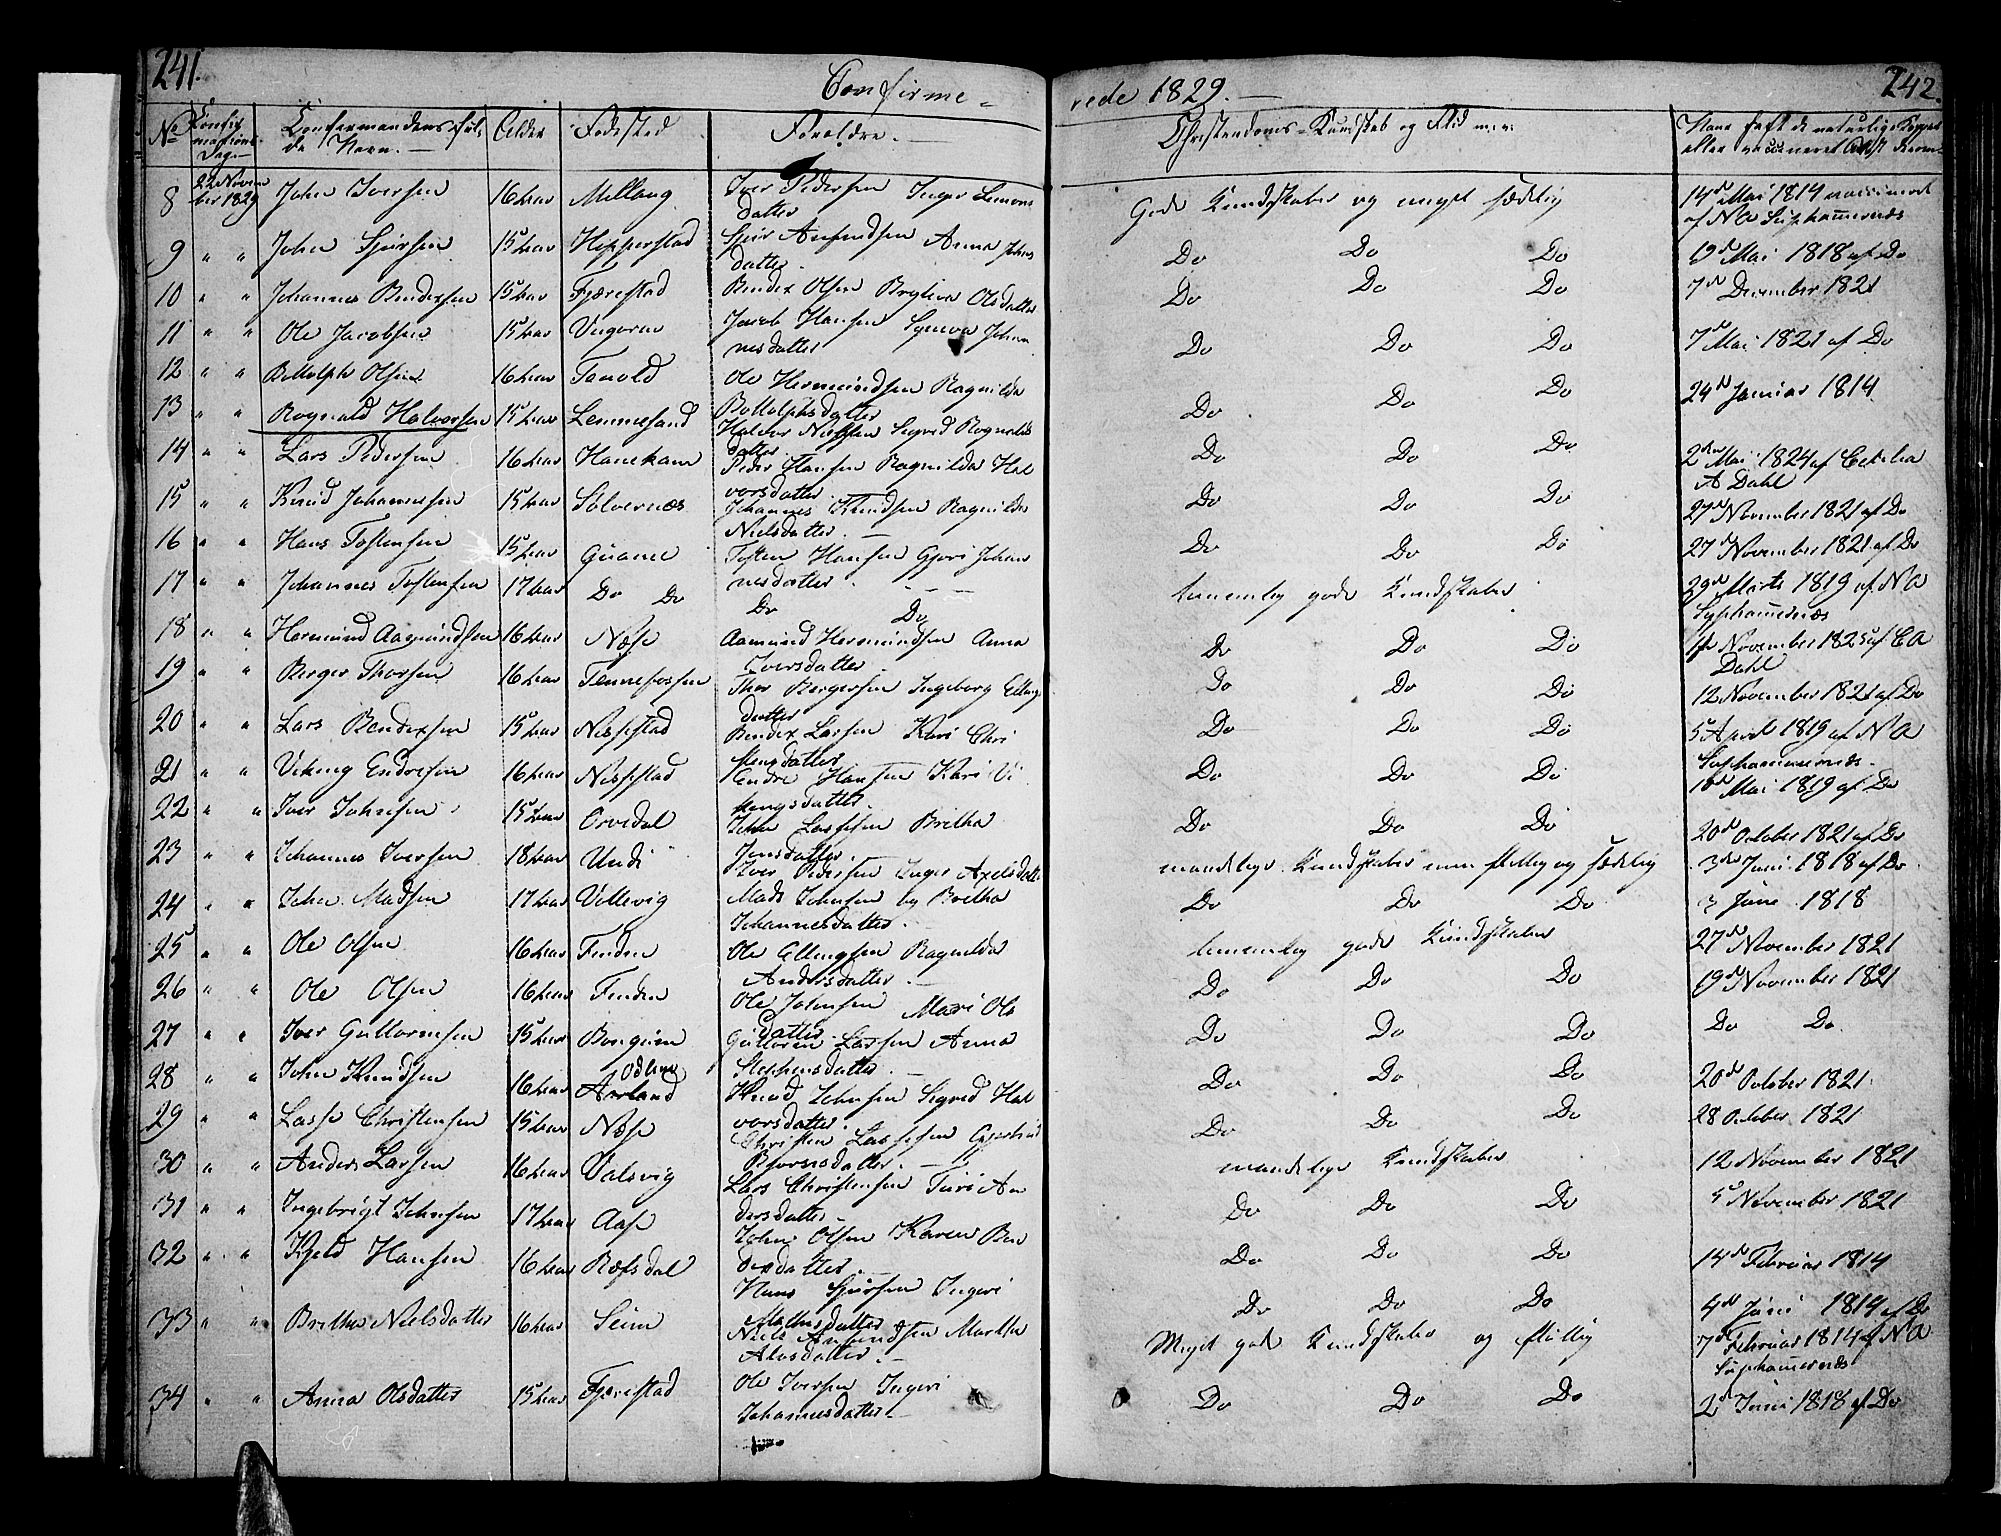 241.
242.
Confirme-
rede 1829.
No Konfirmations Dag. Konfirmandens fulde Navn. Alder Fødested Forældre. Christendoms-Kundskab og Flid m.v. Naar havt de naturlige Kopper eller vaccineret
8 22 November 1829 John Iversen 16 aar Iver Pedersen Inger datter Gode Kundskaber og meget sædelig 14d Mai 1814 vaccineret
af N A Syphamernæs
9 " " John Sjursen 15 aar Hopperstad Sjur Anfindsen Anna Johns
datter. Do Do Do Mai 1818 af Do
10 " " Johannes Bendixsen 15 aar Fjærestad Bendix Olsen Bryteva Olsdatter Do Do Do 7d December 1821
11 " " Ole Jacobsen 15 aar Jacob Hansen Synneva Johan
nesdatter Do Do Do 7d Mai 1821 af Do
12 " " Bottolph Olsen 16 aar Ole Hermundsen Ragnilda
Bottolphsdatter Do Do Do 24d Januar 1814
13 " " Rognald Halvorsen 15 aar Halvor Nielsen Segred Rognalds
datter Do Do Do 2den Mai 1824 af Cecilia
A Dahl
14 " " Lars Pedersen 16 aar Hanekam Peder Hansen Ragnilda Hal
vorsdatter Do Do Do 27d November 1821 af Do
15 " " Knud Johannesen 15 aar Solvernæs Johannes Knudsen Ragnilda
Nielsdatter. Do Do Do 27d November 1821 af Do
16 " " Hans Tostensen 15 aar Tosten Hansen Gjøri Johan
nesdatter.
17 " " Johannes Tostensen 17 aar Do Do Do Do temmelig gode Kundskaber 29d Marts 1819 af N A
Syphamernæs
18 " " Hermund Aamundsen 16 aar Næse Aamund Hermundsen Anna
Iversdatter. Do Do Do November 1825 af C A
Dahl
19 " " Berger Thorsen 16 aar Tennefossen Thor Bergersen Ingeborg Ellings
datter Do Do Do 12 November 1821 af Do
20 " " Lars Bendixsen 15 aar Nissestad Bendix Larsen Kari Chri
stensdatter Do Do Do 5 April 1819 af N A
Syphamernæs.
21 " " Viking Endresen 16 aar Nissestad Endre Hansen Kari Vi
kingsdatter. Do Do Do Mai 1819 af Do
22 " " Iver Johnsen 15 aar Orvedal John Lassesen Britha
Jonsdatter. Do Do Do 20d October 1821 af Do
23 " " Johannes Iversen 18 aar Undi Iver Pedersen Inger Axelsdatter maadelige Kundskaber men flittig og sædelig 3die Juni 1818 af Do
24 " " John Madsen 17 aar Vellevig Mads Johnsen og Britha
Johannesdatter. Do Do Do 3 Juni 1818
25 " " Ole Olsen 16 aar Finden Ole Ellingsen Ragnilda
Andersdatter. temmelig gode Kundskaber 27d November 1821
26 " " Ole Olsen 16 aar Finden Ole Johnsen Mari Ols
datter Do Do Do 19d November 1821
27 " " Iver Guttormsen 15 aar Guttorm Larsen Anna
Stephensdatter. Do Do Do Do Do
28 " " John Knudsen 16 aar Aurland Knud Johnsen Segred Hal
vorsdatter. Do Do Do 20d October 1821.
29 " " Lasse Christensen 15 aar Næse Christen Lassesen
Biornsdatter. Do Do Do 28 October 1821
30 " " Anders Larsen 16 aar Valsvig Lars Christensen Turi An
dersdatter. maadelige Kundskaber 12 November 1821
31 " " Ingebrigt Johnsen 17 aar Aase Johns Olsen Karen Ben
dixdatter. Do Do Do 5 November 1821
32 " " Kjeld Hansen 16 aar Refsdal Hans Sjursen Ingeri
datter Do Do Do 14d Februar 1814
Do Do Do 4d Juni 1814 af Do
33 " " Britha Nielsdatter 16 aar Seim Niels Anfindsen Martha
datter. Meget gode Kundskaber og flittig 7d Februar 1814 af N A
Syphamernæs
34 " " Anna Olsdatter 15 aar Fjærestad Ole Iversen Ingeri
Johannesdatter. Do Do Do 2d Juni 1818 af Do